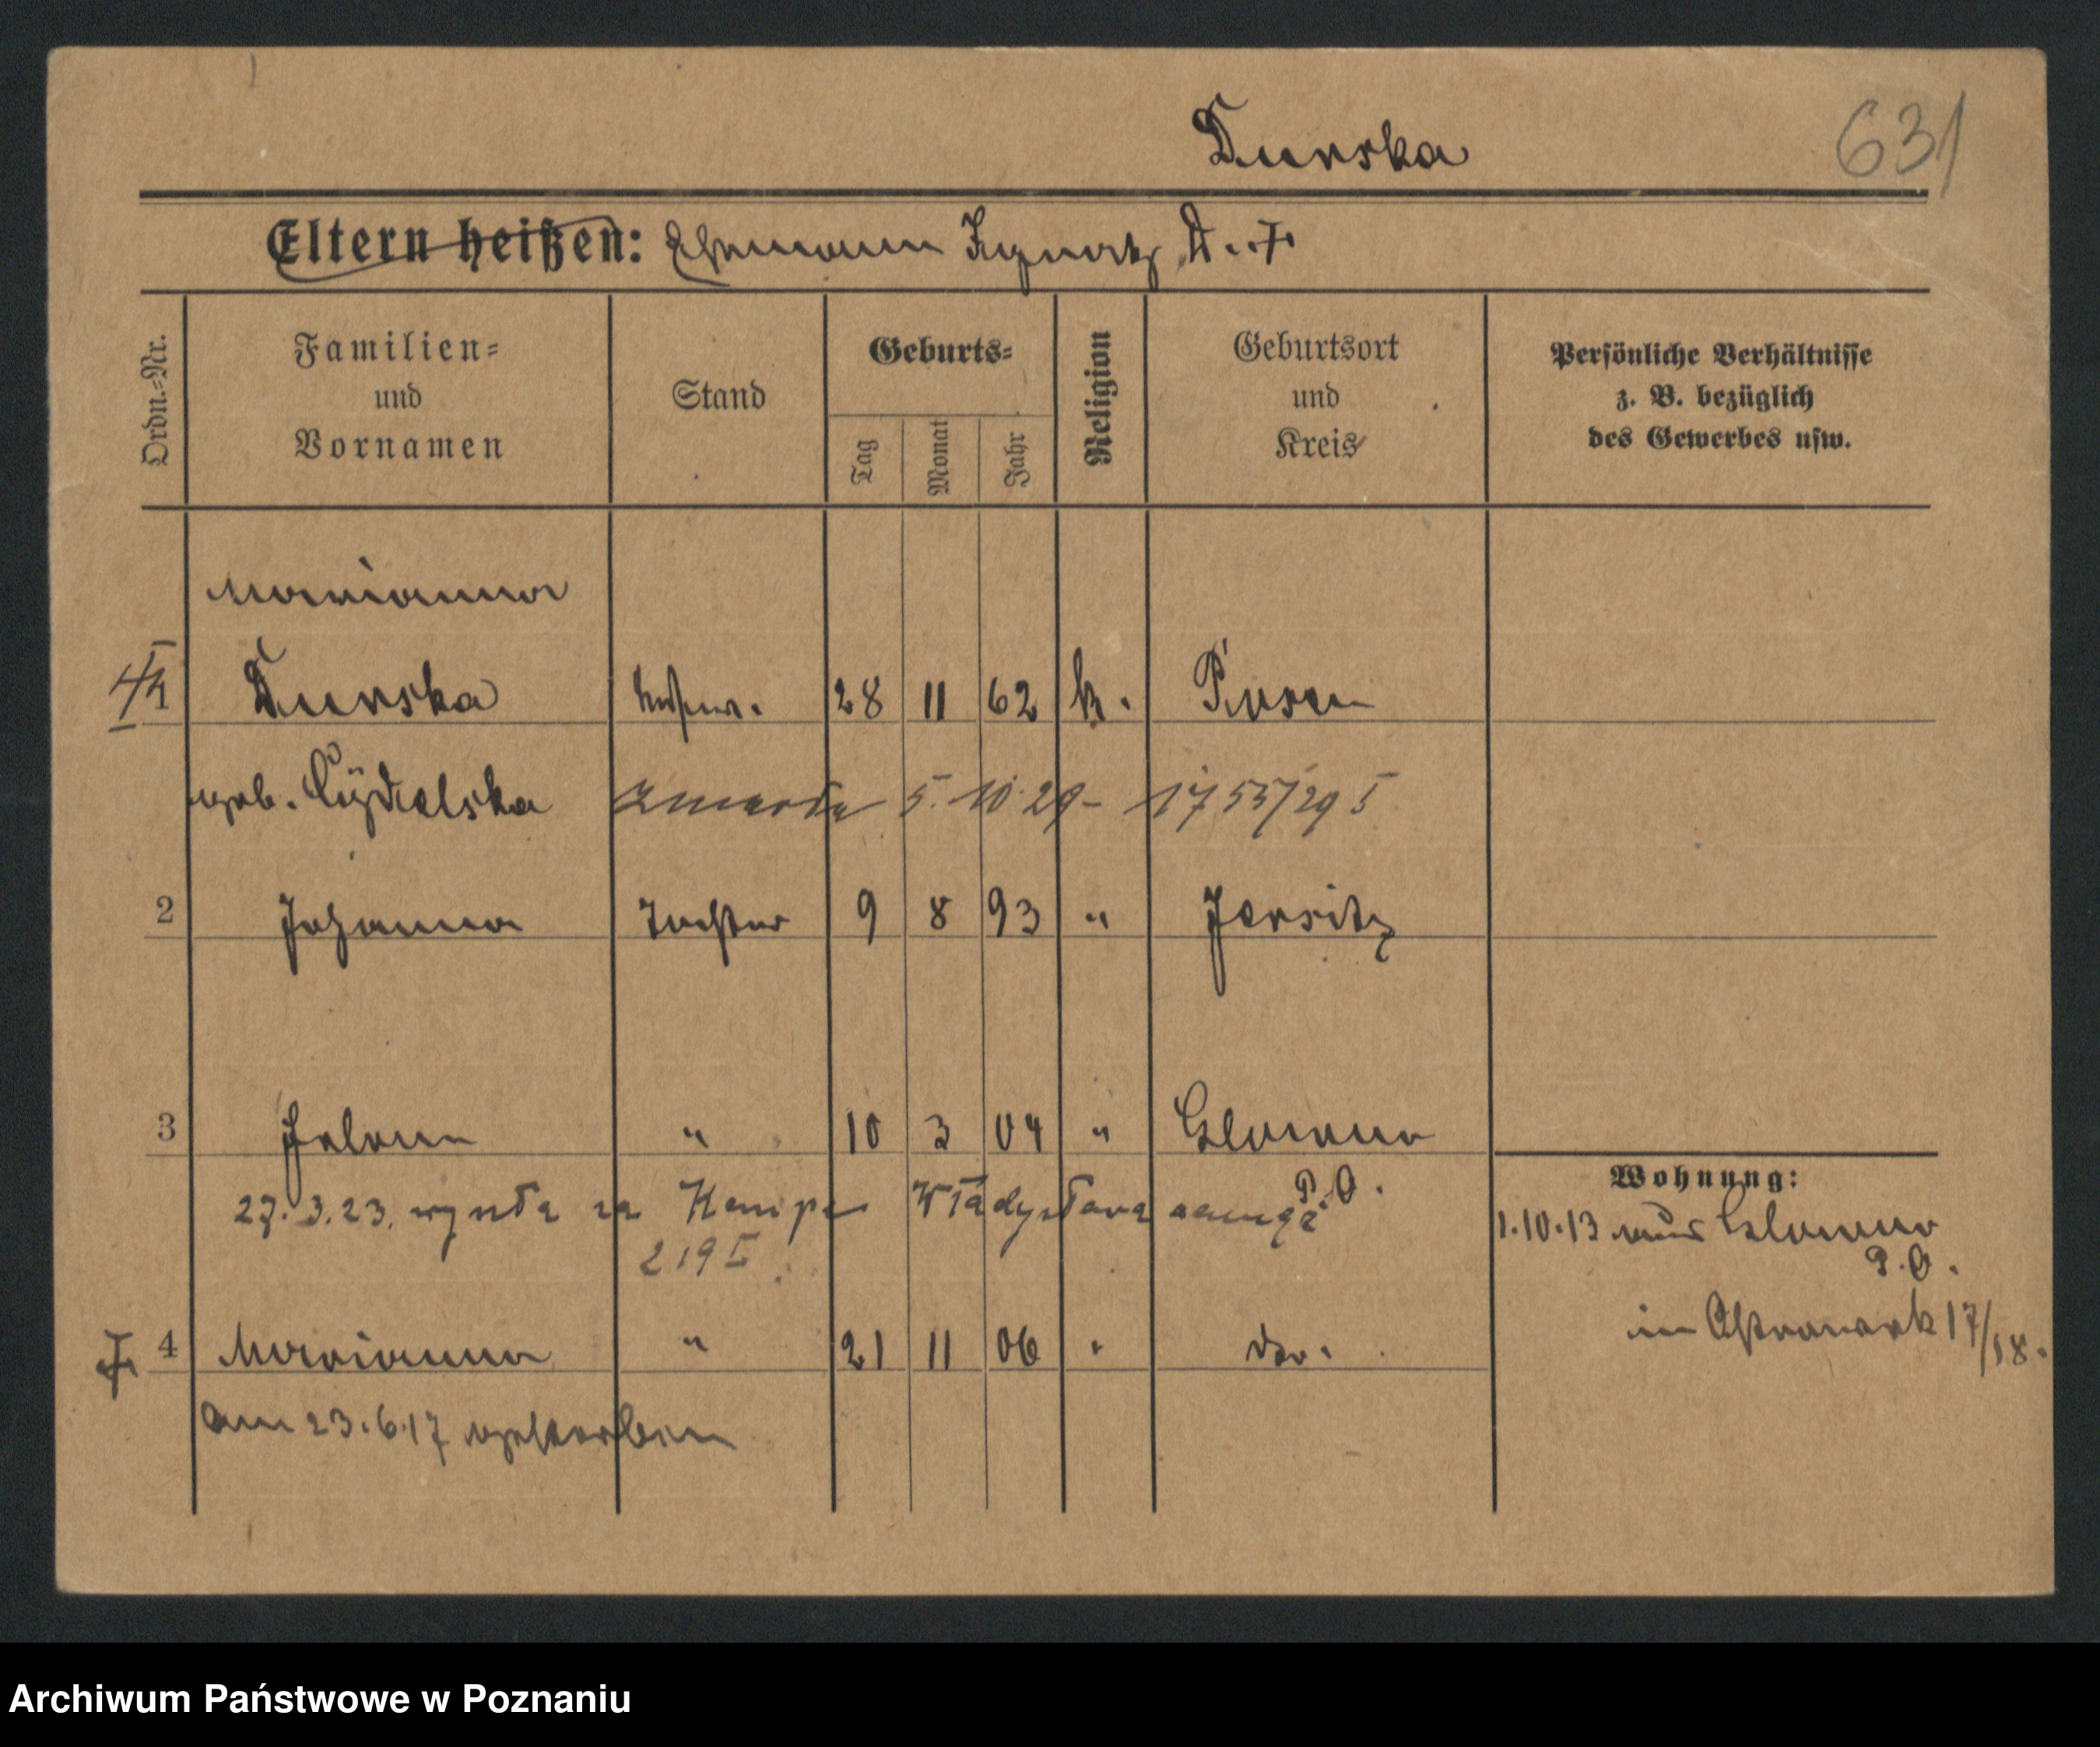 Dunska
631
Eltern heißen: Ehemann Ignatz D. †
Ordn.=Nr.
Familien=
und
Vornamen
Stand
Geburts=
Tag
Monat
Jahr
Religion
Geburtsort
und
Kreis
Persönliche Verhältnisse
z. B. bezüglich
des Gewerbes usw.
Marianna
Dunska 28 11 62 k. Posen
geb. Cydralska zmarła 5.10.29 - 1755/29 I
2 Johanna Tochter 9 8 93 " Jersitz
3 Helene " 10 3 04 " Glowno
P.O.
27.3.23. wyszła za Władysława zamąż
219 I
Wohnung:
1.10.13 Glowno
P.O.
17/18.
4 Marianna " 21 11 06 " do.
am 23.6.17 gestorben
Archiwum Państwowe w Poznaniu